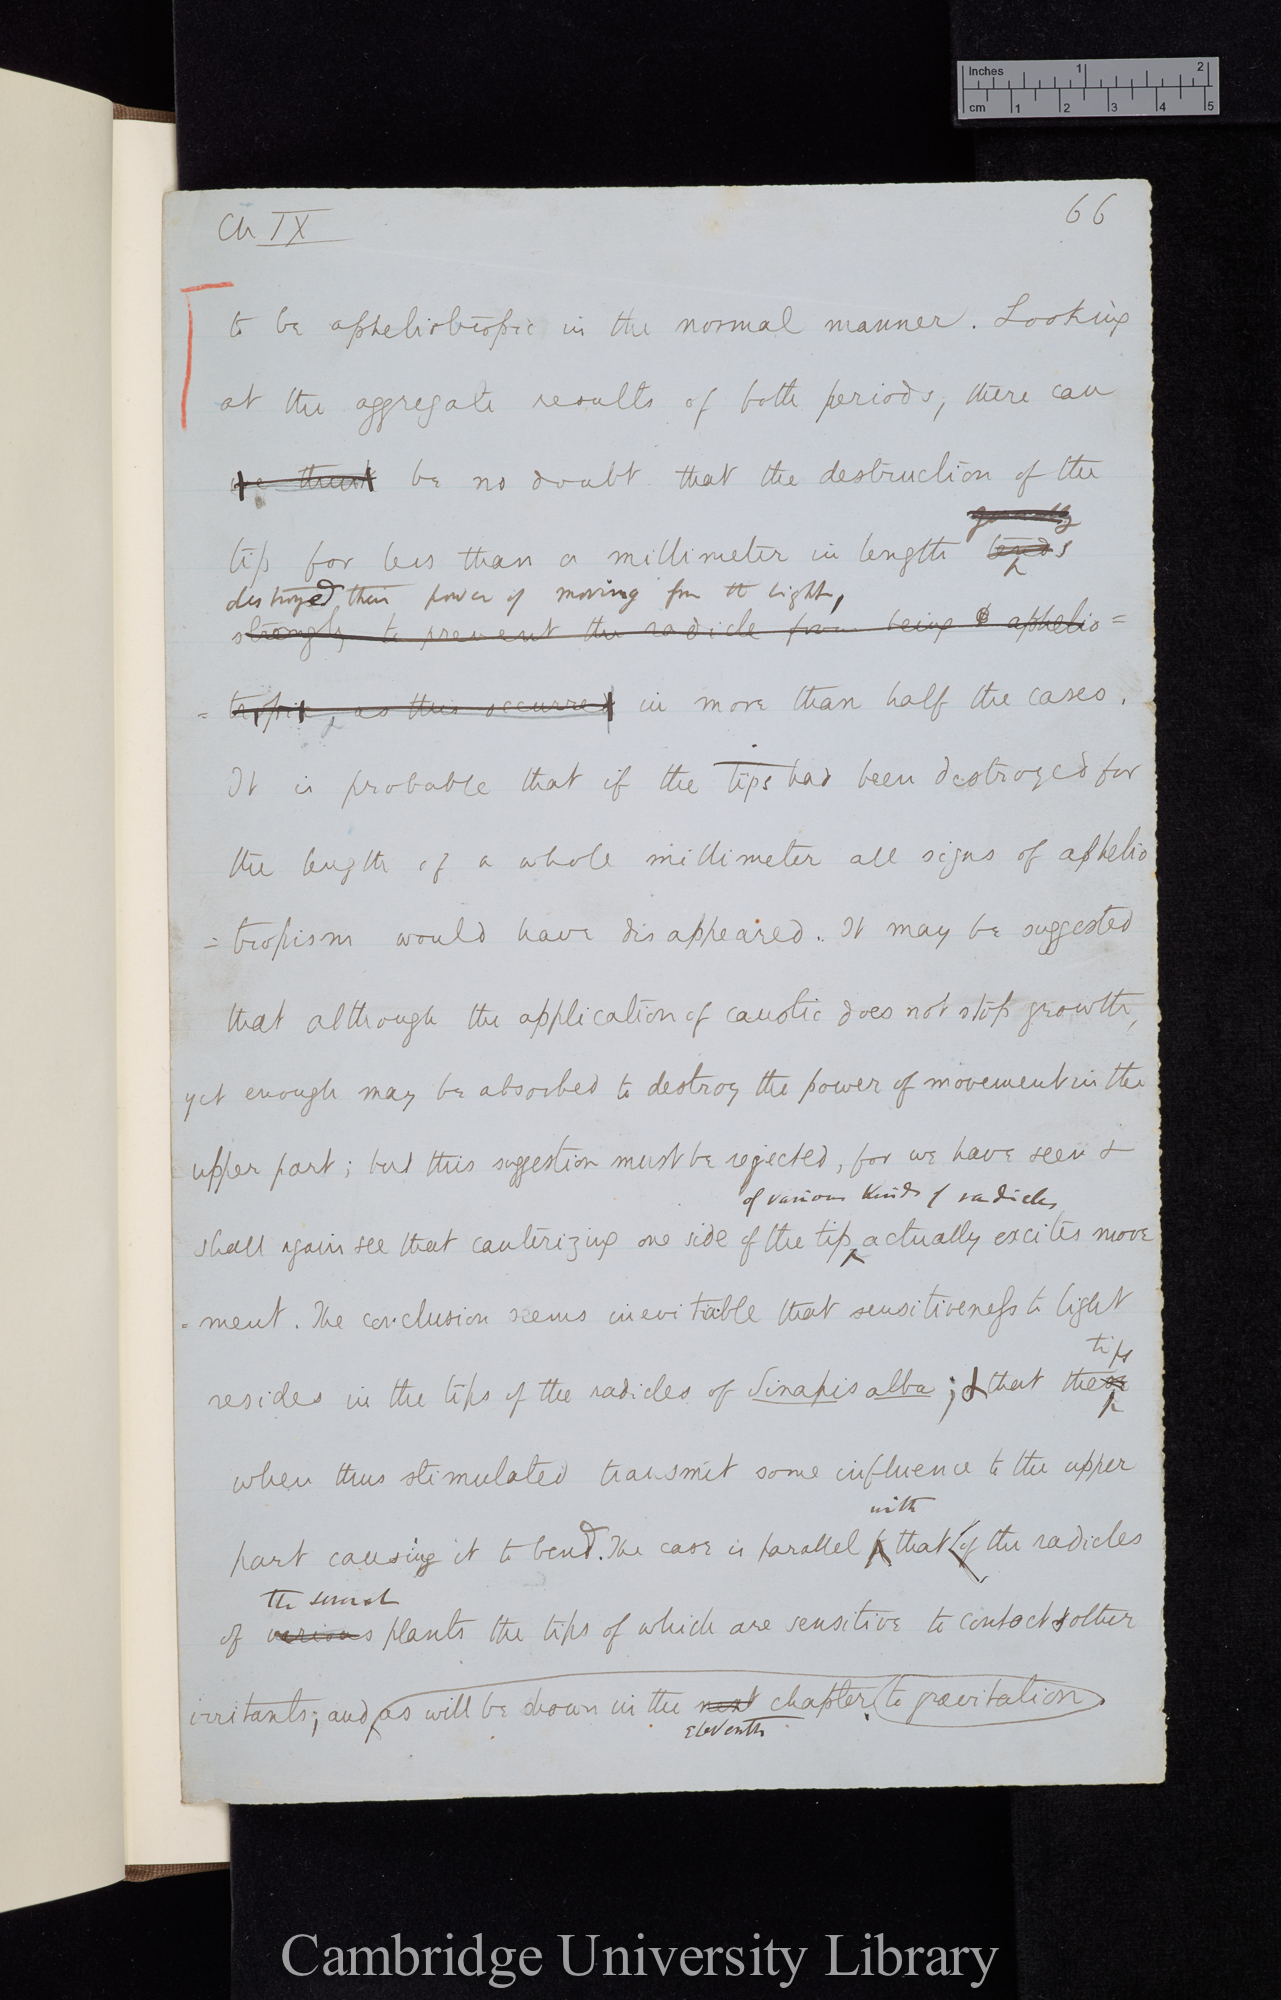 Inches 1 2
cm 1 2 3 4 5
Ch IX 66
to be apheliotropic in the normal manner. Looking
at the aggregate results of both periods, there can
be no doubt that the destruction of the
generally
tip for less than a millimeter in length tends
destroyed their power of moving from the light,
strongly to prevent the radicle from being aphelio=
=tropic, as this occurred in more than half the cases.
It is probable that if the tips had been destroyed for
the length of a whole millimeter all signs of aphelio
=tropism would have disappeared. It may be suggested
that although the application of caustic does not stop growth,
yet enough may be absorbed to destroy the power of movement in the
upper part; but this suggestion must be rejected, for we have seen &
of various kinds of radicles
shall again see that cauterizing one side of the tip actually excites move
=ment. The conclusion seems inevitable that sensitiveness to light
tips
resides in the tips of the radicles of Sinapis alba; & that the
when thus stimulated transmit some influence to the upper
with
part causing it to bend. The case is parallel that of the radicles
the several
of various plants the tips of which are sensitive to contact & other
irritants; and, as will be shown in the next chapter, to gravitation.
eleventh
Cambridge University Library